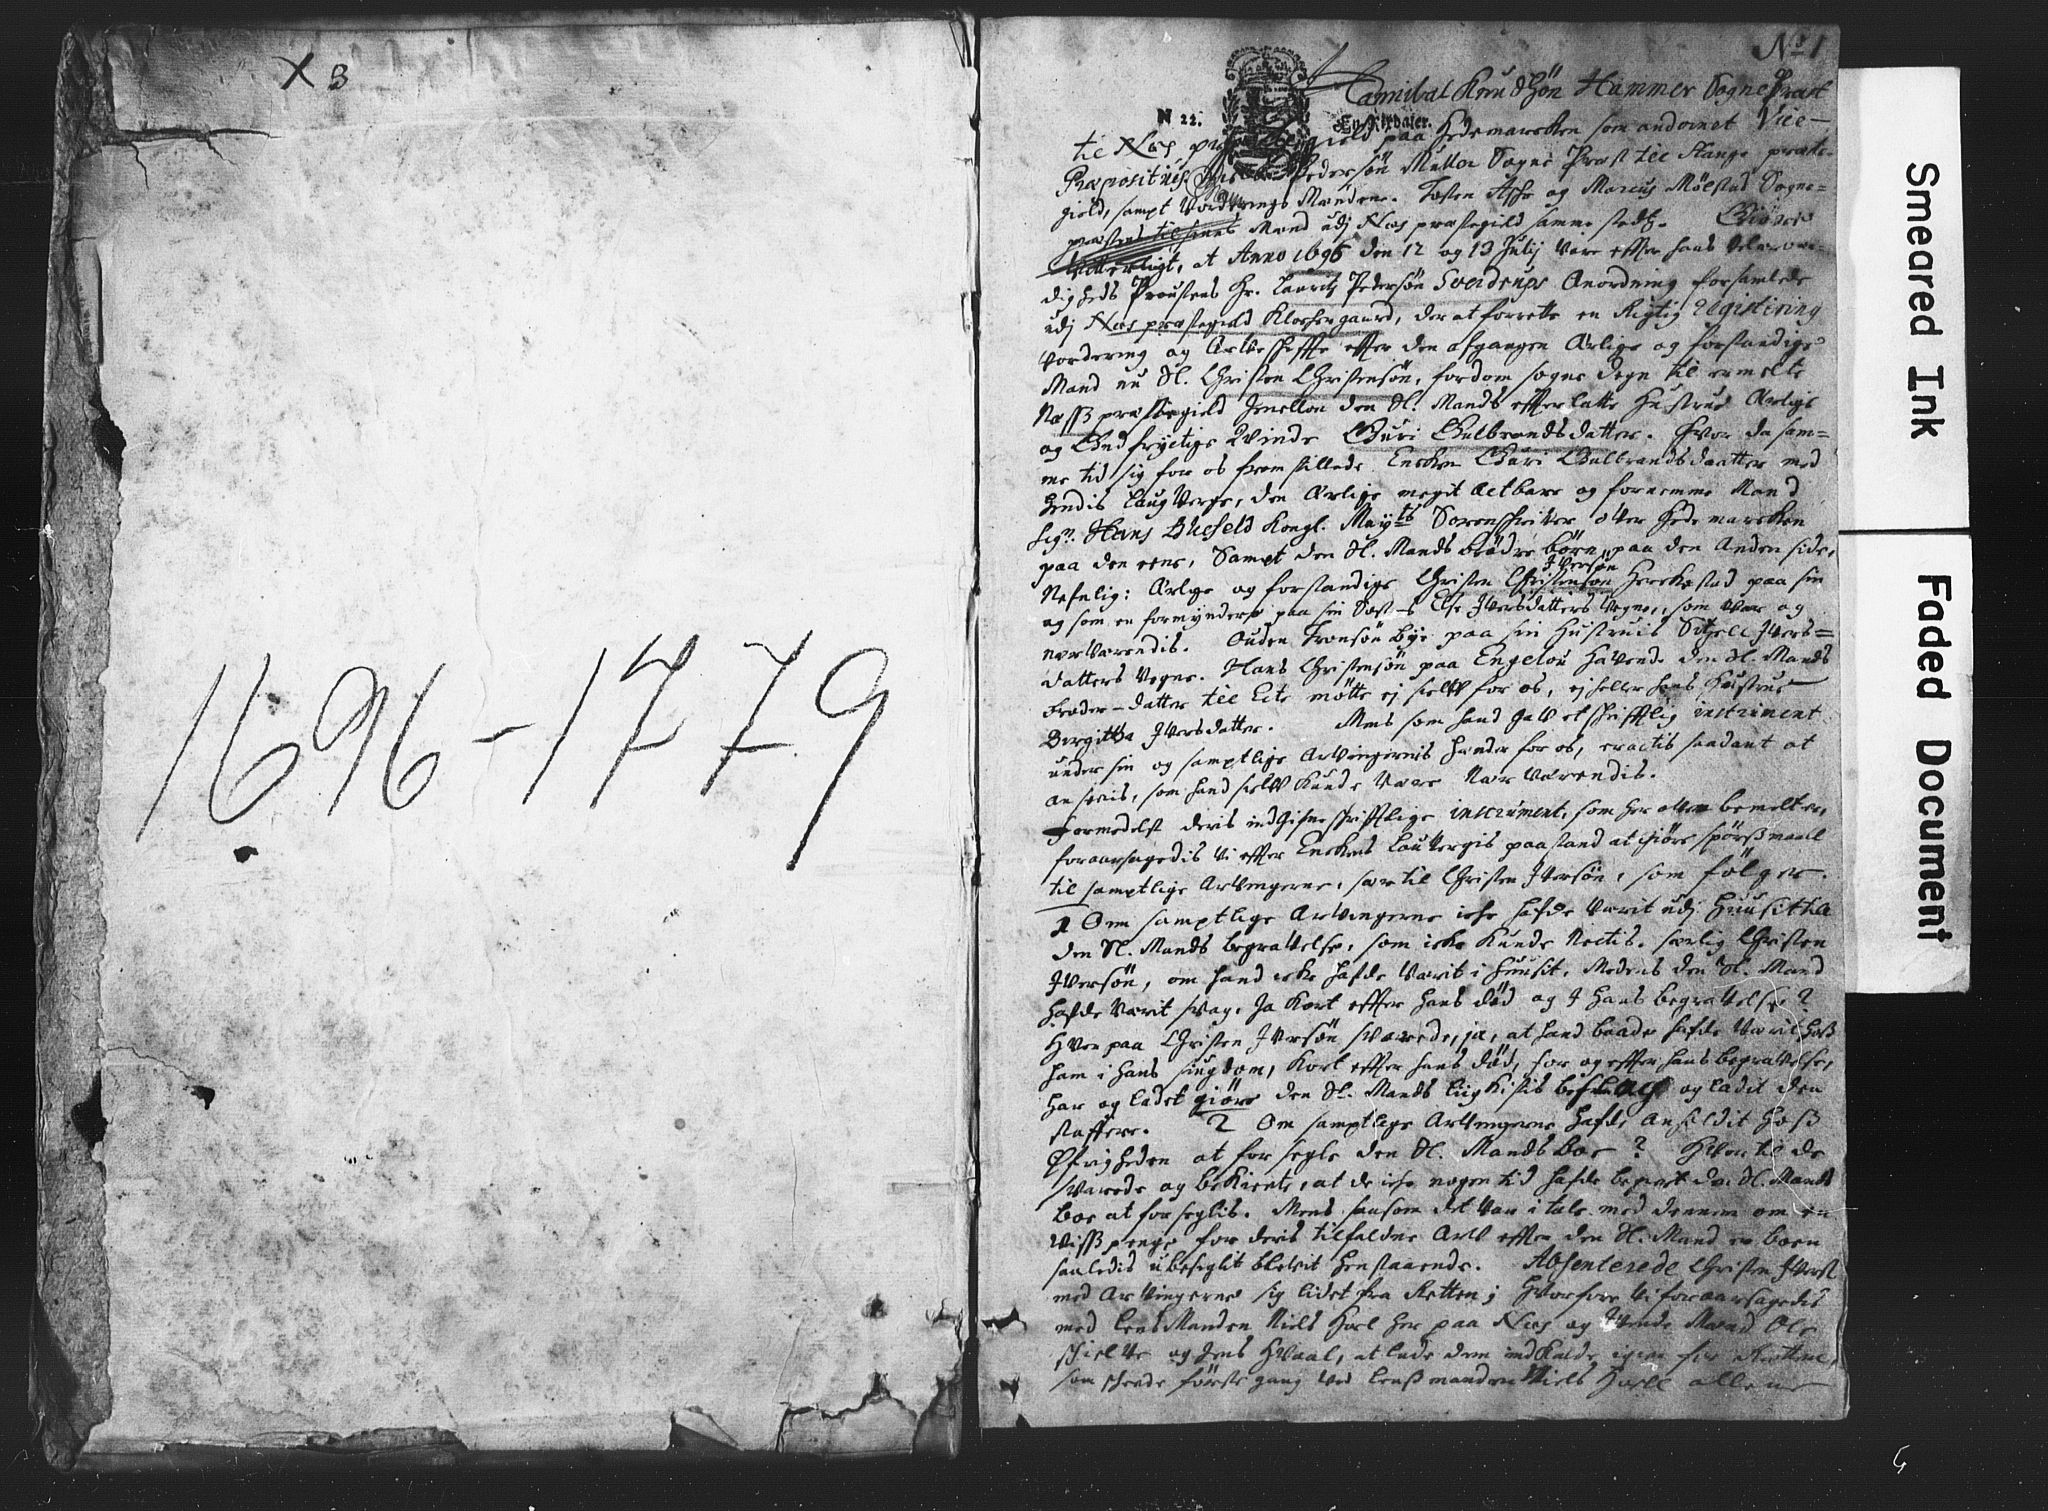 X 3
1696-1779
No 1
N 22.
En Rixdaler.
Hannibal Knudsøn Hammer Sogne Præst
til Næs præstegield paa Hedemarcken som andomet Vice-
Præpositus, Pedersøn Muller Sogne Præst til Stange præste-
gield, sampt Vorderings Mændene. Tosten Ashe og Marcus Mølstad Sogne-
præstens tilsatte Mænd udj Næs præstegield sammestedtz. Giøre
Vitterligt, at Anno 1696 den 12 og 13 Julij Vare effter hans Velærvær-
digheds Proustens Hr. Lauritz Pedersøn Sverdrups Anordning forsamlede
udj Næs præstegield Klockergaard, der at forrette en Rigtig Registering
Vordering og Arfveskiffte effter den afgangen Ærlige og forstandige
Mand nu Sl. Christen Christensøn, fordom sogne degn til ermelte
Næss præstegield Jmellom den Sl. Mands effterlatte Hustrue Ærlige
og Gudfrygtige Qvinde Guri Gulbrandsdatter. Hvor da sam-
me tid sig for os frem stillede Encken Guri Gulbrandsdaatter med
hendis Laug Verge, den Ærlige megit Actbare og fornemme Mand
Sigr. Hans Bhefeld Kongl. Mayts Sorenschriver over Hedemarcken
paa den eene, Sampt den Sl. Mands brødre børn paa den Anden side,
Iversøn
Nefnlig: Ærlige og forstandige Christen Christensøn Herckestad paa sin
og som en formynder paa sin Søst-s Else Iversdatters Vegne, som var og
nærværendis. Ouden Tronsøn Bye paa sin Hustrues Sitzell Ivers-
datters Vegne. Hans Christensøn paa Engelou havende den Sl. Mands
broder-datter til Ecte møtte ej sielf for os, ej heller hans Hustrue
Birgitta Iversdatter. Mens som hand gaf et skrifftlig instrument
under sin og samptlige Arvingernis hænder for os, eractis saadant at
ansees, som hand sielf kunde Være Nærværendis.
Formedelst deris indgifne skrifftlige instrument, som her ofven bemelter,
foraarsagedis Vi effter Enckens Lauvergis paastand at giøre spørssmaal
til samptlige Arvingerne, sær til Christen Iversøn, som følger.
1 Om samptlige Arvingerne icke hafde Værit udj Huusit til
den Sl. Mands begravelse, som icke kunde Nectis. særlig Christen
Iversøn, om hand icke hafde Værit i Huusit, Medens den Sl. Mand
hafde Værit svag, Ja kort effter hans død og J hans begravelse?
Hvor paa Christen Iversøn svarede, ja, at hand baade hafde Værit hoss
ham i hans siugdom, kort effter hans død, for og effter hans begravelse,
har og ladet giøre den Sl. Mands Liigkistis beslag og ladit den
staffere. 2 Om samptlige Arvingerne hafde anholdit hoss
Øfrigheden at for segle den Sl. Mands boe? Hvor til de
svarede og bekiente, at de icke nogen tid hafde begiert den Sl. Mands
boe at forseglis. Mens saasom det var i tale med dennem om en
Viss penge for deris tilfaldne Arf effter den Sl. Mand er boen
saaledis ubeseglit blevit henstaaende. Absenterede Christen Iversøn
med Arvingerne sig lidet fra Retten; Hvorfore Vi foraarsagedis
med Lens Manden Niels Hoel her paa Næs og tvende Mænd Ole
Skielve og Jens Hvaal, at lade dem indkalde igien for Rettene,
som skeede første gang ved Lenssmanden Niels Hoell allene
Smeared Ink
Faded Document